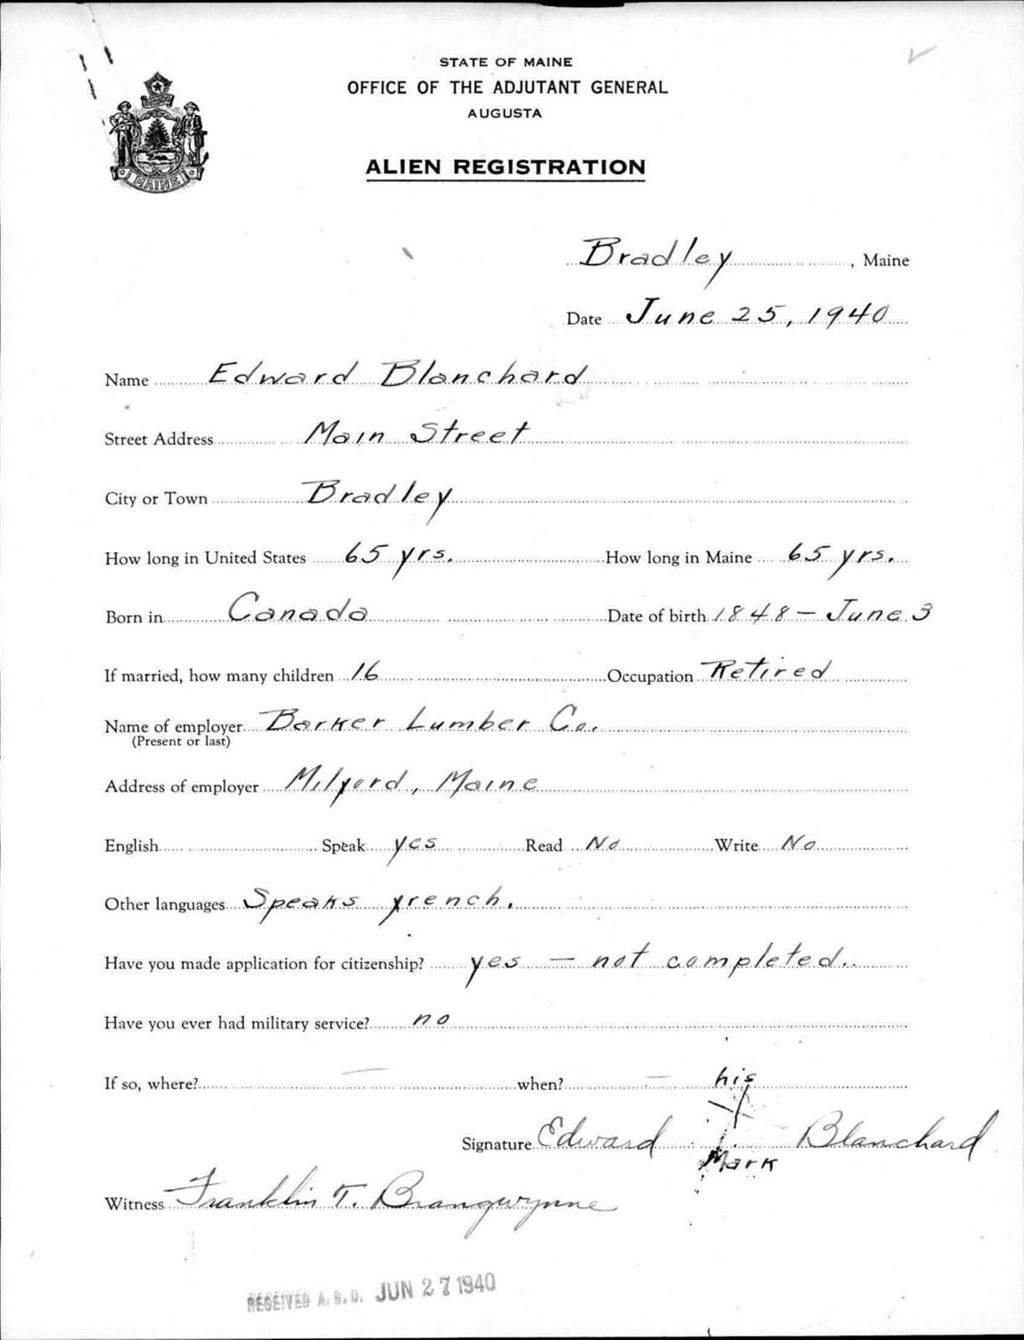 STATE OF MAINE
OFFICE OF THE ADJUTANT GENERAL
AUGUSTA
ALIEN REGISTRATION
MAINE
Bradley, Maine
Date June 25, 1940
Name Edward Blanchard
Street Address Main Street
City or Town Bradley
How long in United States 65 yrs. How long in Maine 65 yrs.
Born in Canada Date of birth 1848 — June 3
If married, how many children 16 Occupation Retired
Name of employer Barker Lumber Co.
(Present or last)
Address of employer Milford, Maine
English Speak yes Read No Write No
Other languages Speaks french.
Have you made application for citizenship? yes — not completed.
Have you ever had military service? no
If so, where? — when? —
his
Signature Edward X Blanchard
Mark
Witness Franklin T. Brangwynne
RECEIVED A.G.O. JUN 27 1940